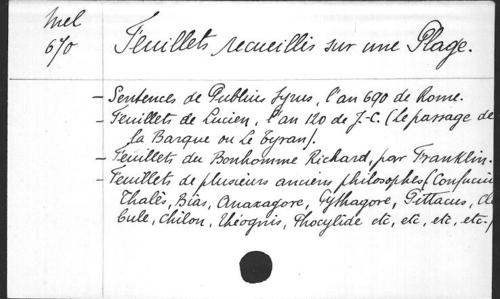 Mel
670
Feuillets recueillis sur une Plage.
- Sentences de Publius Syrus, l'an 690 de Rome.
- Feuillets de Lucien, l'an 120 de J.-C. (Le passage de
la Barque ou Le Tyran).
- Feuillets du Bonhomme Richard, par Franklin.
- Feuillets de plusieurs anciens philosophes (Confuciu
Thalès, Bias, Anaxagore, Pythagore, Pittacus, Clé
bule, Chilon, Théognis, Phocylide etc, etc, etc, etc.)